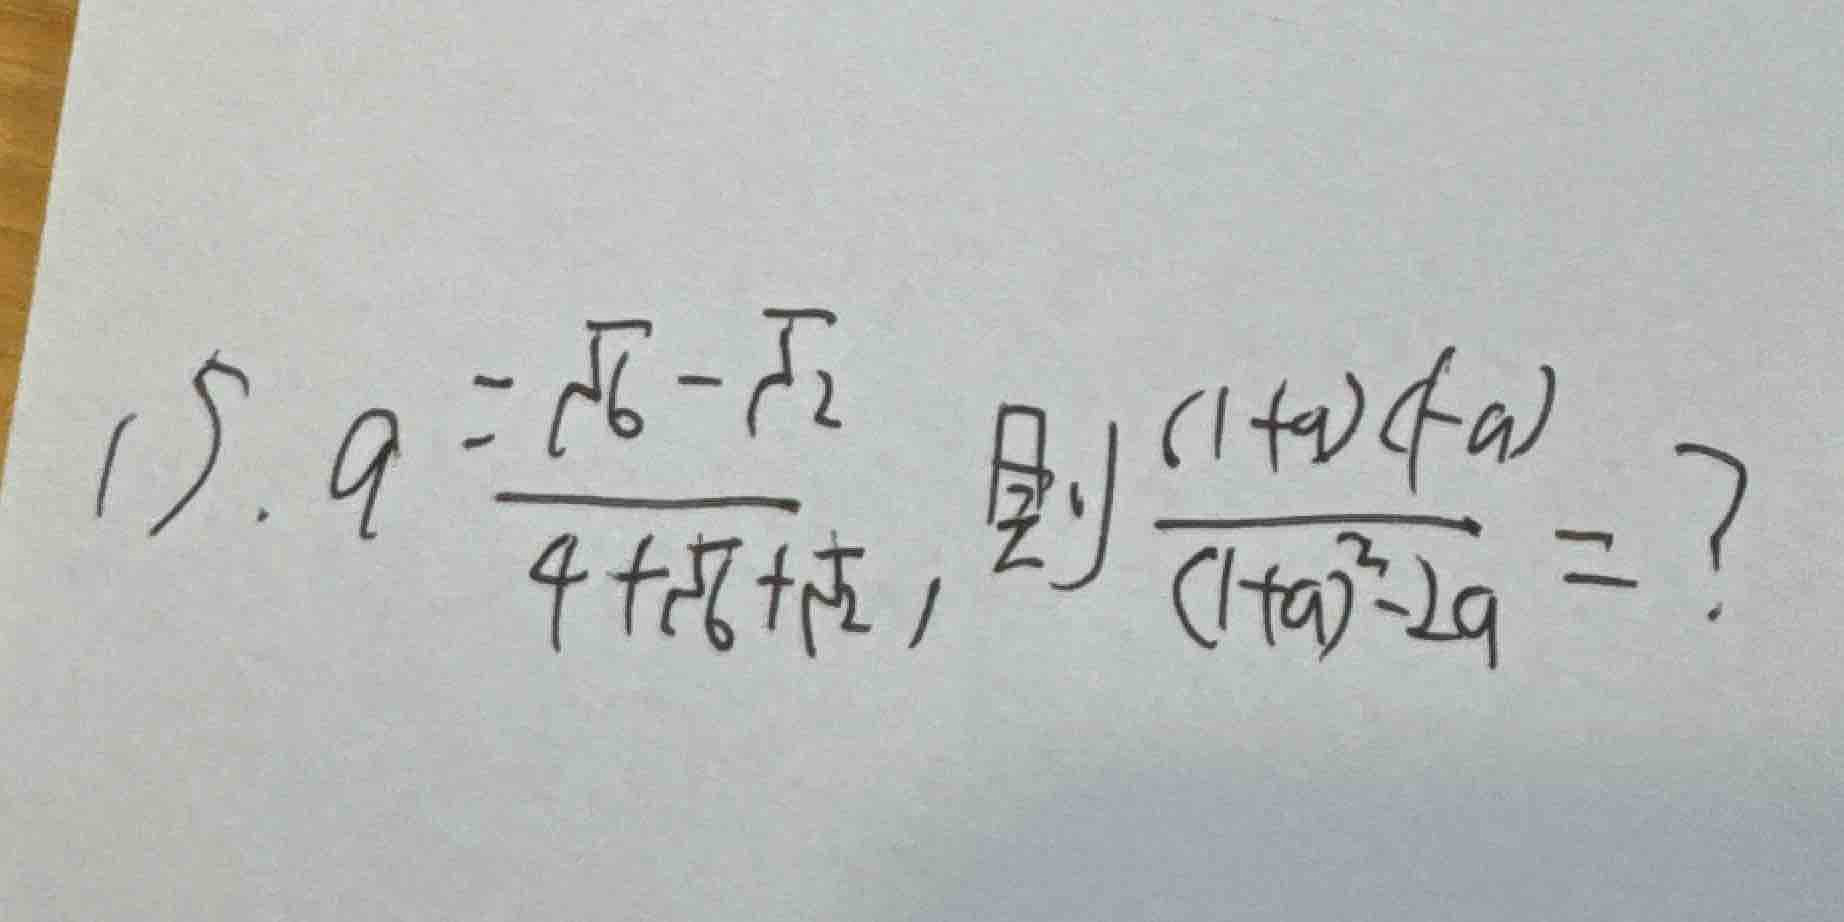 15. a = (√6 - √2)/(4 + √6 + √2), 则 (1+a)(1-a)/((1+a)² - 2a) = ?